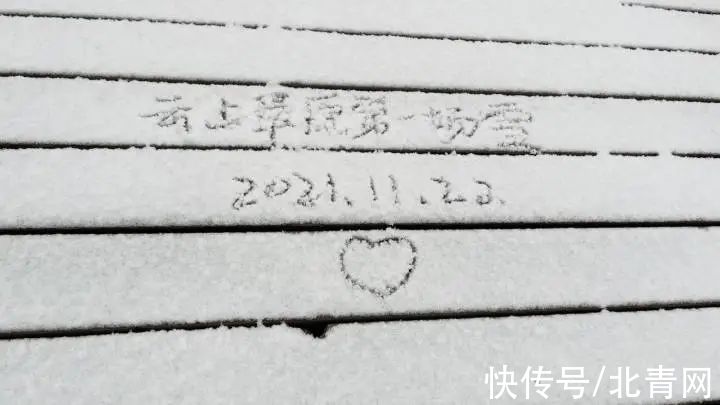 云上草原第一场雪
2021.11.22.
快传号/北青网